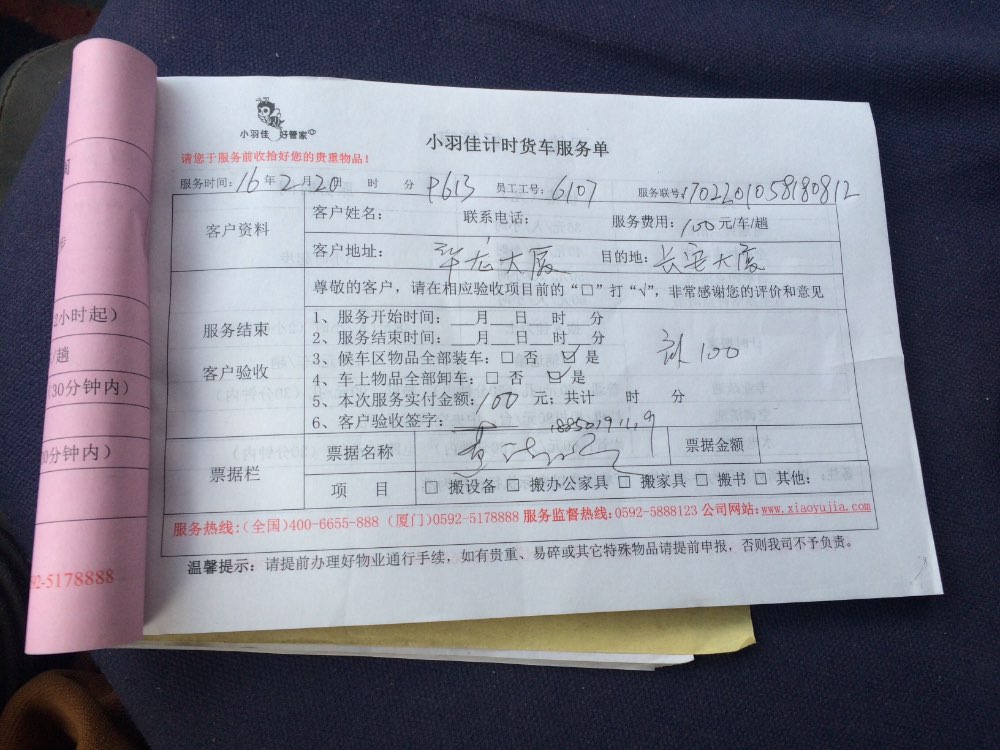 小羽佳 好管家
小羽佳计时货车服务单
请您于服务前收拾好您的贵重物品！
服务时间：16年2月20日 时 分 P613 员工工号：6107 服务联号：170220105818081２
客户资料
客户姓名： 联系电话： 服务费用：100元/车/趟
客户地址：华龙大厦 目的地：长安大厦
服务结束
客户验收
尊敬的客户，请在相应验收项目前的“□”打“√”，非常感谢您的评价和意见
1、服务开始时间：__月__日__时__分
2、服务结束时间：__月__日__时__分
3、候车区物品全部装车：□ 否 ☑ 是
4、车上物品全部卸车：□ 否 ☑ 是
100
5、本次服务实付金额：100 元；共计 时 分
6、客户验收签字：
票据栏
票据名称
票据金额
项 目
□ 搬设备 □ 搬办公家具 □ 搬家具 □ 搬书 □ 其他：
服务热线：（全国）400-6655-888（厦门）0592-5178888 服务监督热线：0592-5888123 公司网站：www.xiaoyujia.com
温馨提示：请提前办理好物业通行手续，如有贵重、易碎或其它特殊物品请提前申报，否则我司不予负责。
2小时起）
/趟
30分钟内）
0分钟内）
92-5178888